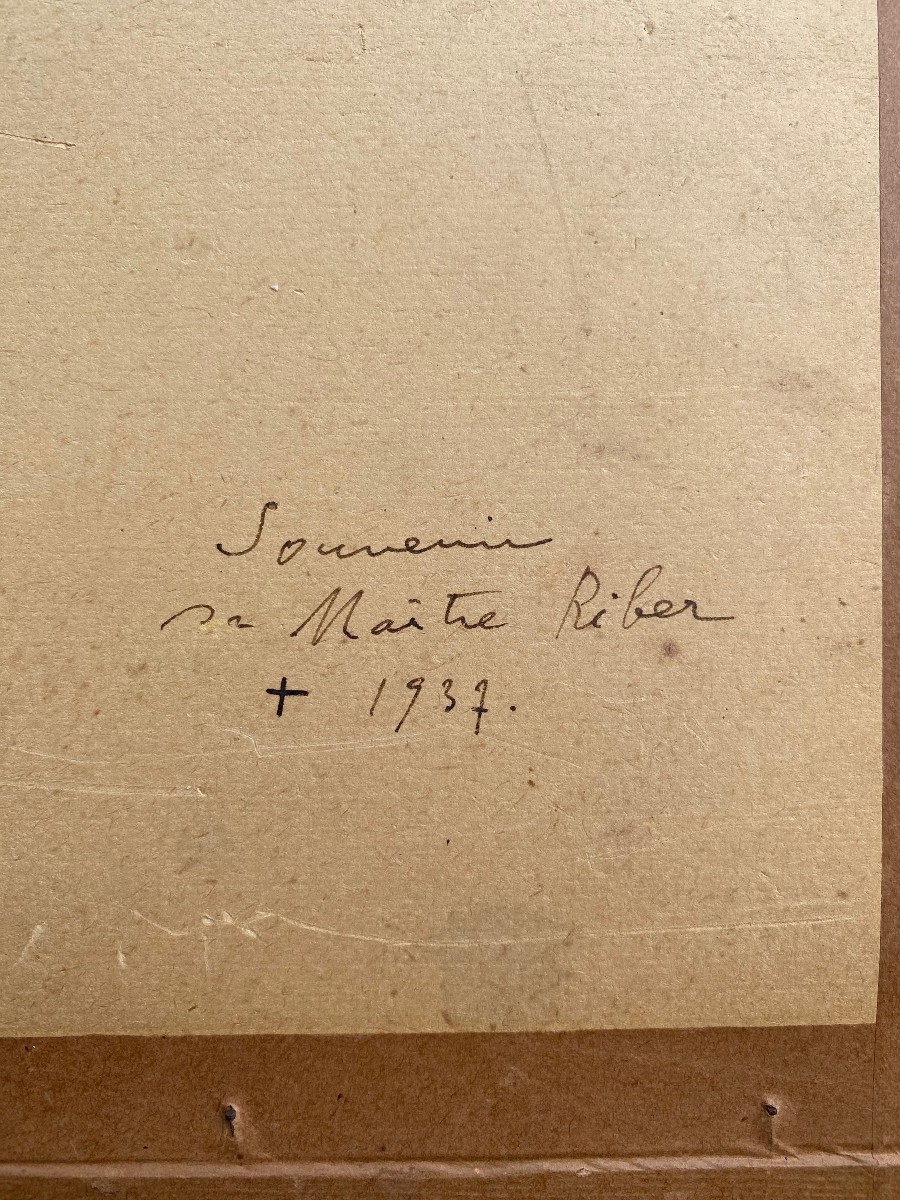 Souvenir
Maître Riber
+ 1937.